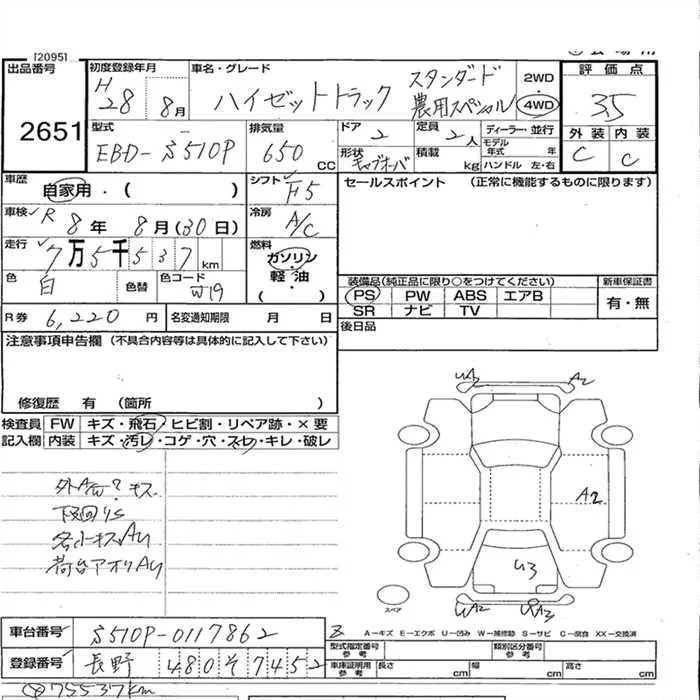 [2095]
出品番号
2651
初度登録年月
H 28年 8月
車名・グレード
ハイゼットトラック スタンダード 農用スペシャル
2WD
4WD
評価点
3.5
外装 内装
C C
型式
EBD-S510P
排気量
650 CC
ドア
2
定員
2人
ディーラー・並行
モデル年式 年
形状
キャブオーバ
積載 kg
ハンドル 左・右
車歴
自家用・( )
シフト
F5
セールスポイント (正常に機能するものに限ります)
車検 R 8年 8月(30日)
冷房
A/C
走行
7万5千537km
燃料
ガソリン
軽油
( )
色
白
色替
色コード
W19
装備品(純正品に限り○をつけてください)
PS PW ABS エアB
SR ナビ TV
新車保証書
有・無
R券 6,220円
名変通知期限 月 日
後日品
注意事項申告欄 (不具合内容等は具体的に記入して下さい)
修復歴 有 (箇所 )
検査員記入欄
FW キズ・飛石・ヒビ割・リペア跡・×要
内装 キズ・汚レ・コゲ・穴・スレ・キレ・破レ
下回りS
各小キズAU
荷台アオリAU
A2
A2
U3
UA2
スペア
A-キズ E-エクボ U-凹み W-補修跡 S-サビ C-腐食 XX-交換済
車台番号 S510P-0117862
登録番号 長野 480 そ 7452
型式指定番号 参考
類別区分番号 参考
車庫証明用 参考 長さ cm 幅 cm 高さ cm
75537km